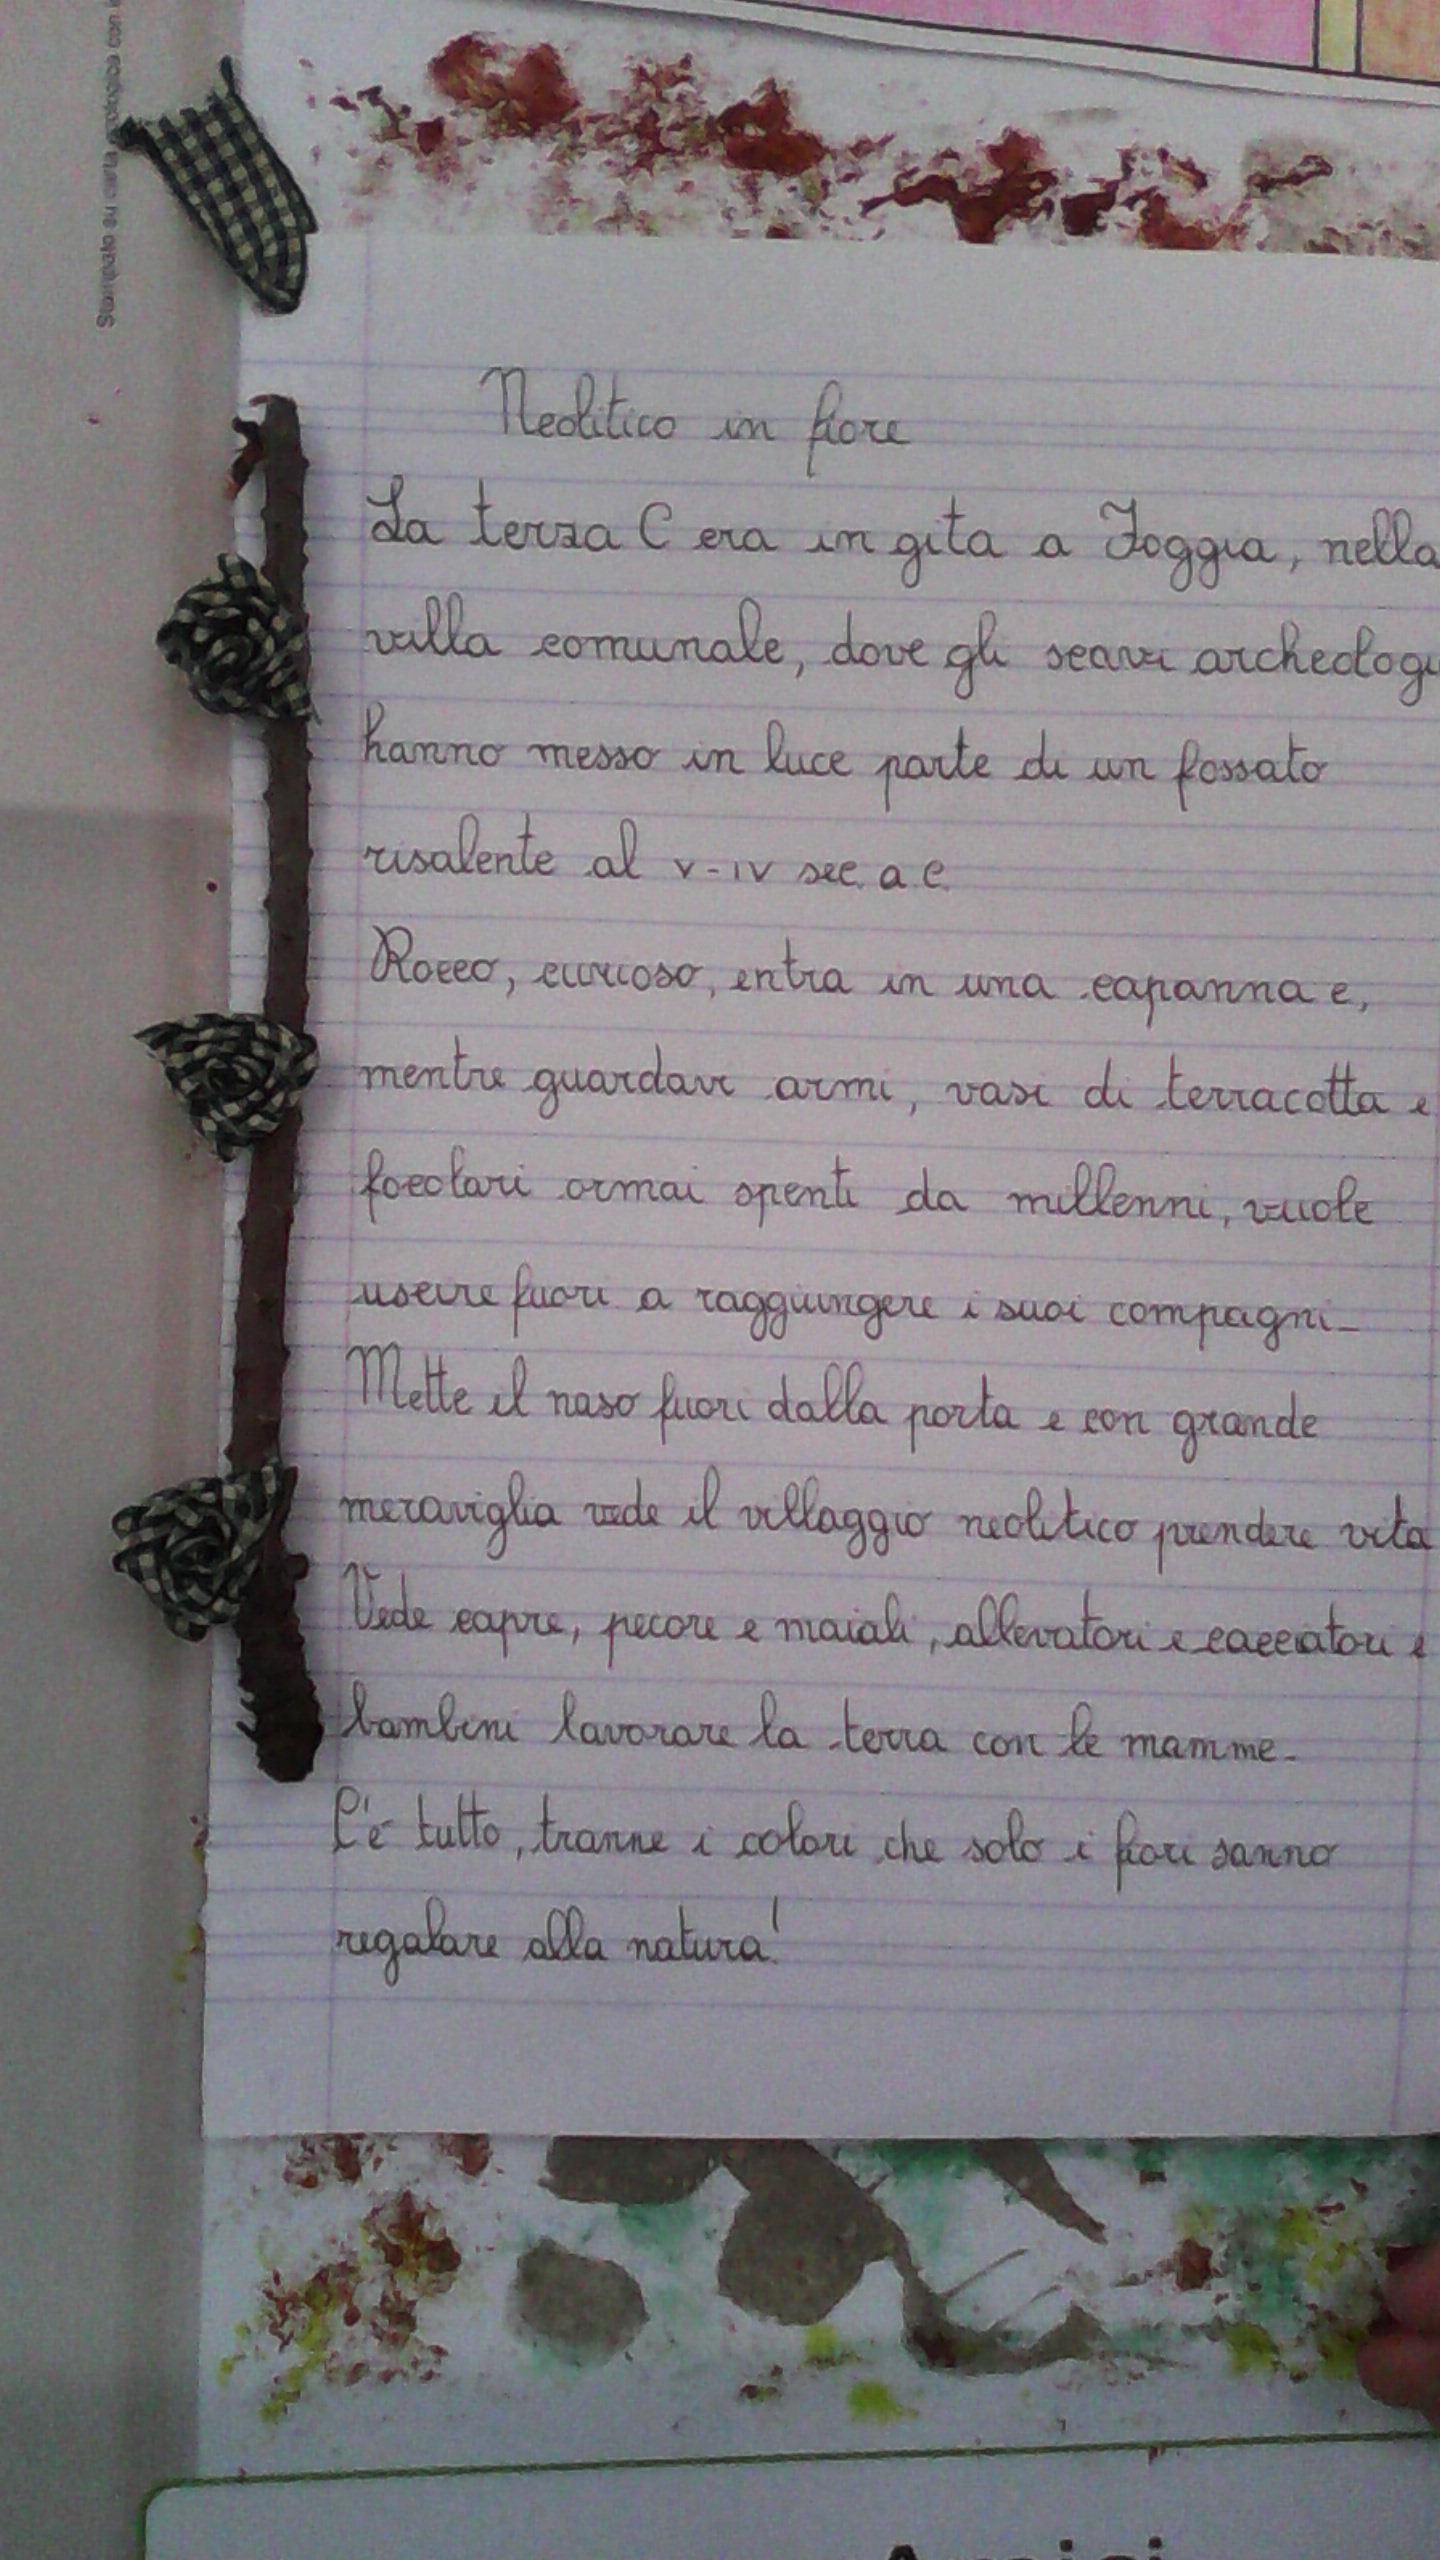 Stampato su carta ecologica con
Neolitico in fiore
La terza C era in gita a Foggia, nella
villa comunale, dove gli scavi archeologi
hanno messo in luce parte di un fossato
risalente al V-IV sec. a.C.
Rocco, curioso, entra in una capanna e,
mentre guardava armi, vasi di terracotta e
focolari ormai spenti da millenni, vuole
uscire fuori a raggiungere i suoi compagni_
Mette il naso fuori dalla porta e con grande
meraviglia vede il villaggio neolitico prendere vita
Vede capre, pecore e maiali, allevatori e cacciatori e
bambini lavorare la terra con le mamme_
C'è tutto, tranne i colori che solo i fiori sanno
regalare alla natura!